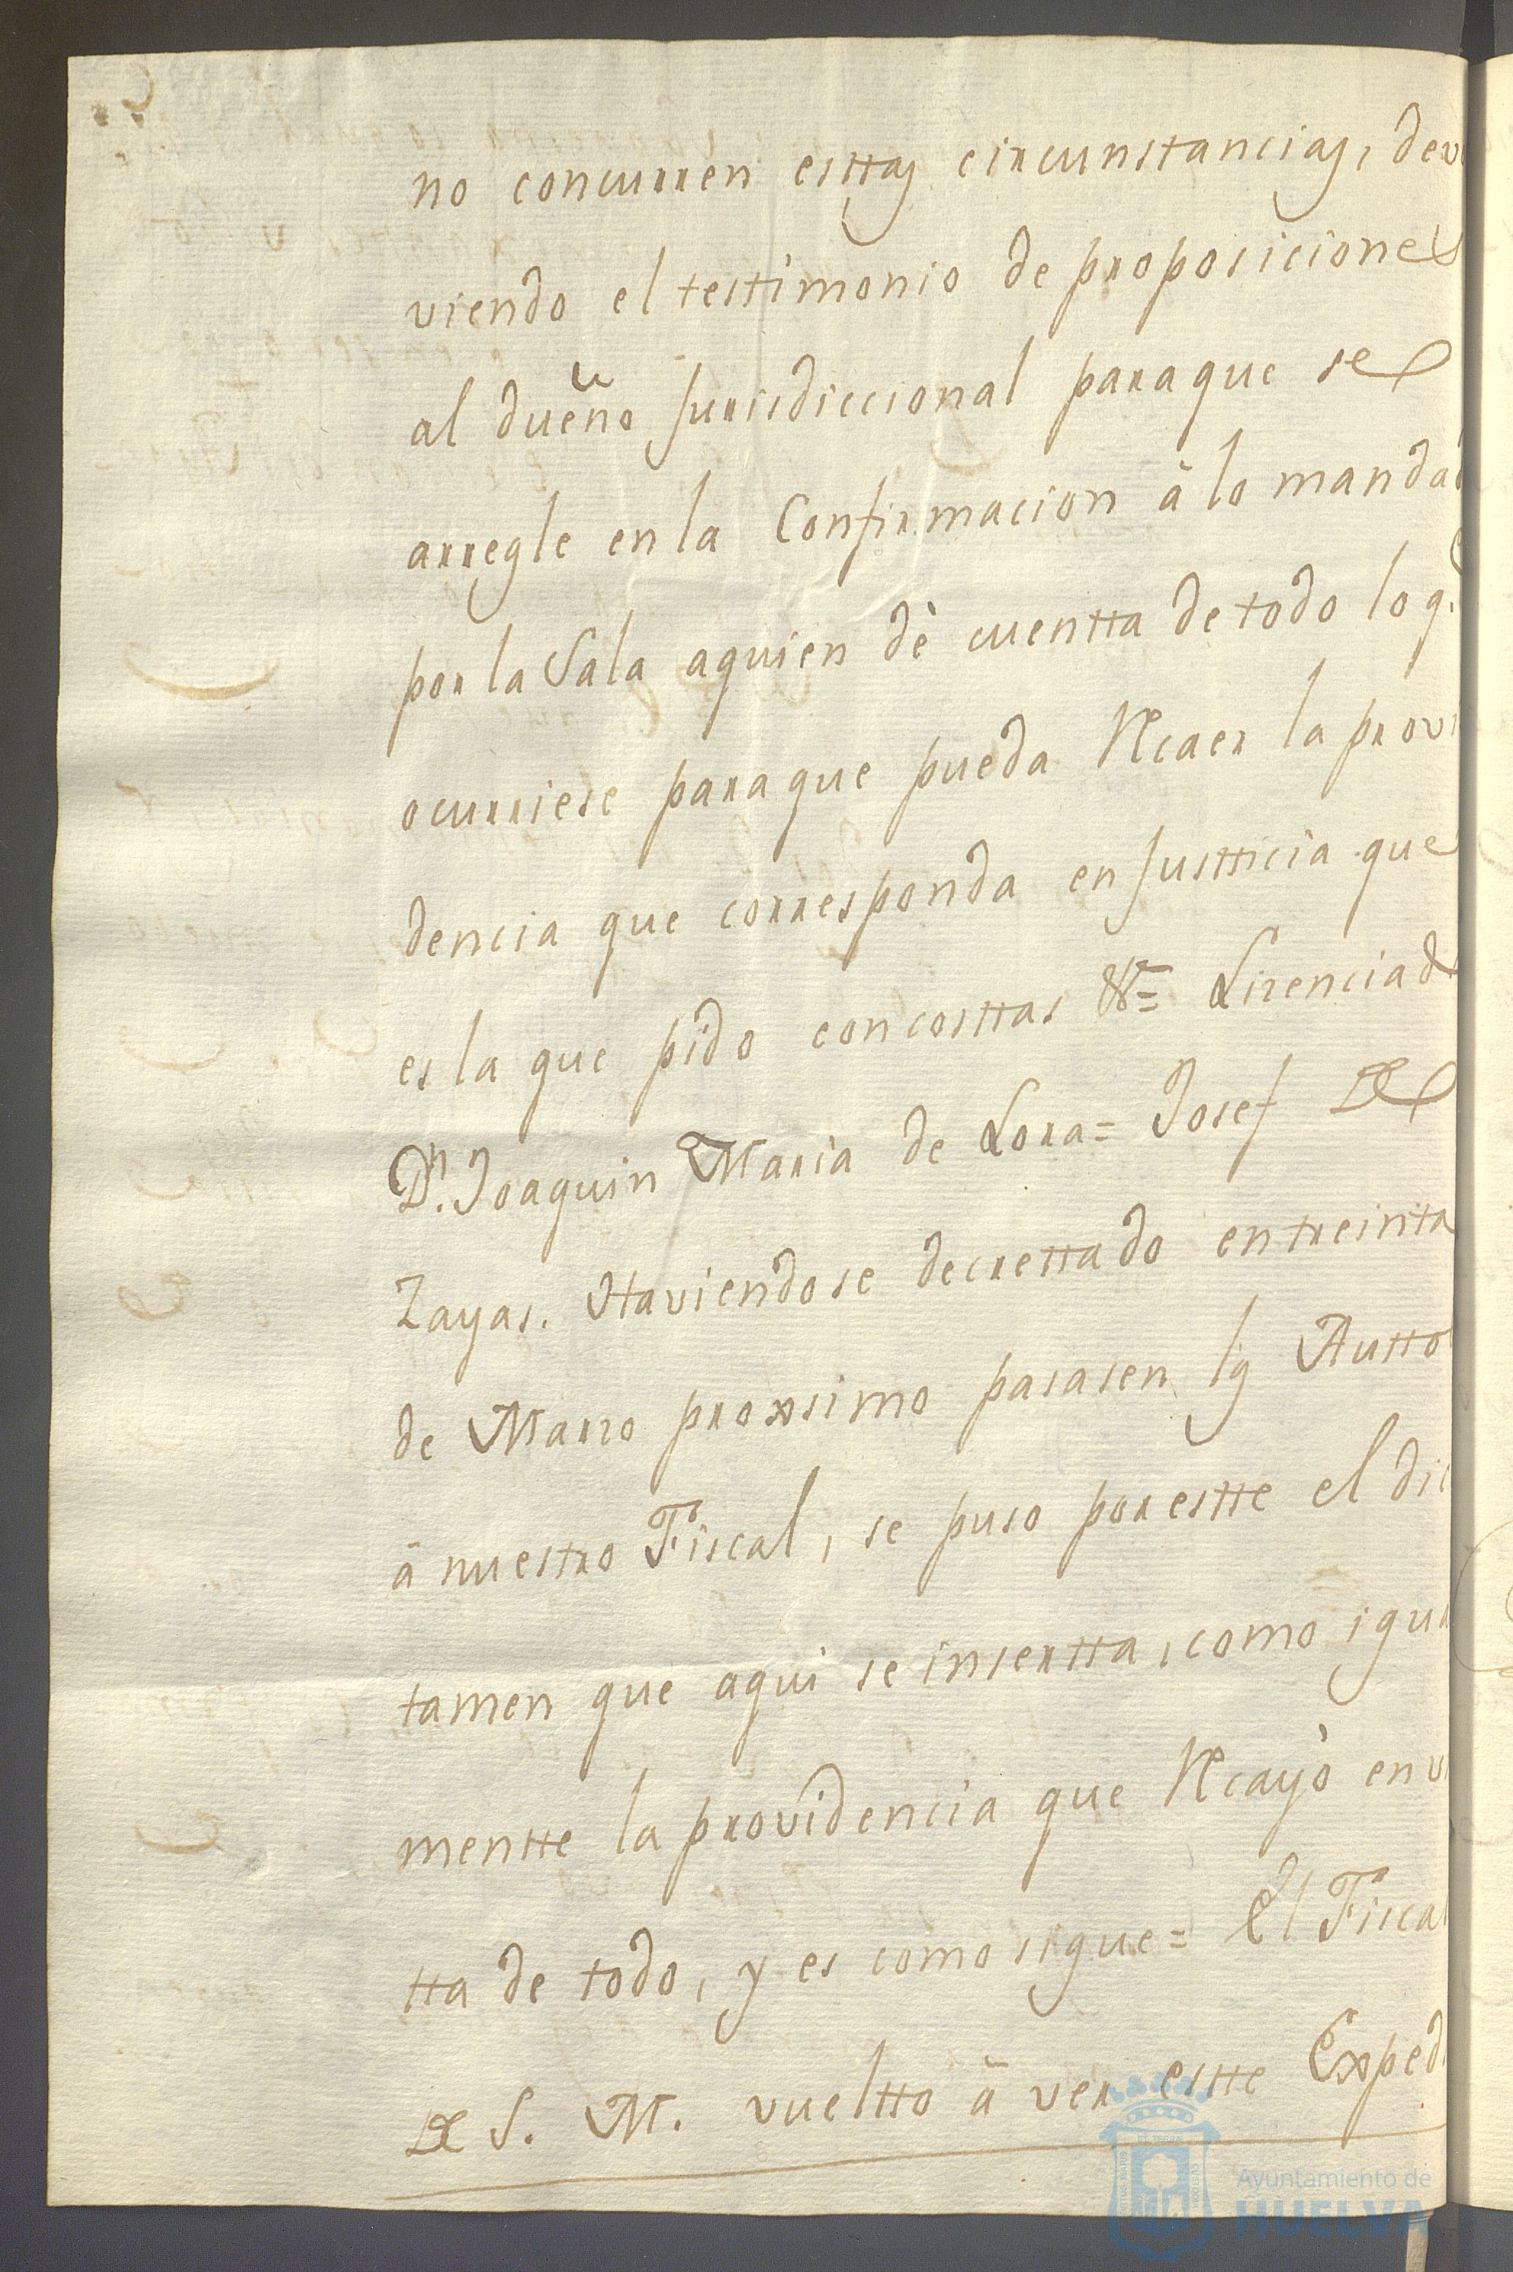 no concurren esttas circunstancias, devol
viendo el testimonio de proposiciones
al dueño Jurisdiccional paraque se
arregle en la Confirmacion â lo mandad
por la Sala aquien dè cuentta de todo lo q.e
ocurriese paraque pueda Recaer la provi
dencia que corresponda en Justticia que
es la que pido con costtas &.a= Lizenciado
D.n Joaquin Maria de Lora= Josef de
Zayas. Haviendose decrettado en treinta
de Marzo proxsimo pasasen los Autto
â nuestro Fiscal, se puso por estte el dic
tamen que aqui se insertta, como igual
mentte la providencia que Recayò en vis
tta de todo, y es como sigue= El Fiscal
de S. M. vueltto â ver estte Exped
Ayuntamiento de
HUELVA